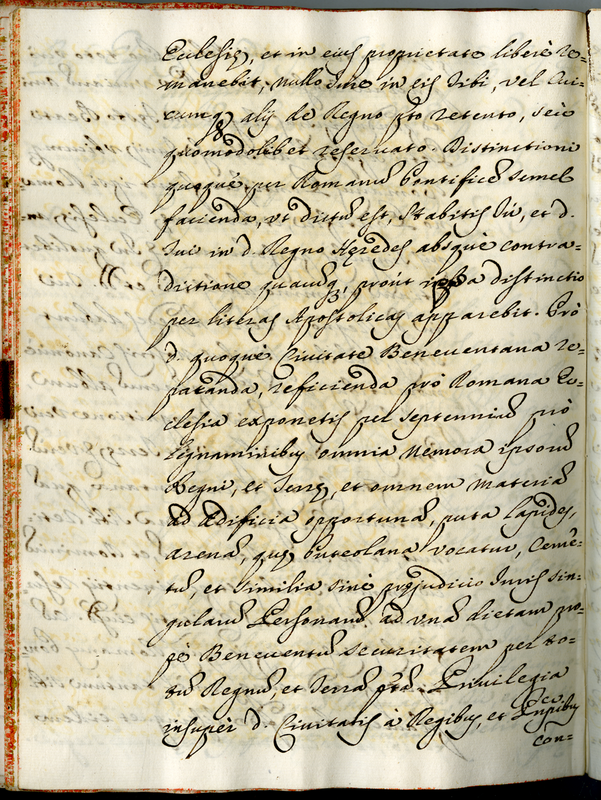 Ecclesiæ, et in eius proprietate liberè re=
manebit, nullo Iure in eis Tibi, vel Cui-
cumq; alij de Regno pto retento, seu
quomodolibet reservato. Distinctioni
quoquè per Romanū Pontificē semel
facienda, ut dictū est, stabitis Tu, et d.
Tui in d. Regno Hæredes absquè contra-
dictione quacūq;, proùt ipsa distinctio
per literas Apostolicas apparebit. Prò
d. quoquè Civitate Beneventana re=
paranda, reficienda prò Romana Ec=
clesia exponetis per septenniū prò
Lignaminibus omnia Nemora ipsorū
Regni, et Terræ, et omnem materiā
ad Ædificia opportunā, puta lapides,
arenā, quæ Puteolana vocatur, Cemē-
tū, et similia sinè præjudicio Iuris sin=
gularū Personarū ad unā dietam pro-
pè Beneventū securitatem per to=
tū Regnū, et Terrā ptā. Privilegia
insupèr d. Civitatis à Regibus, et Pnpibus
con=